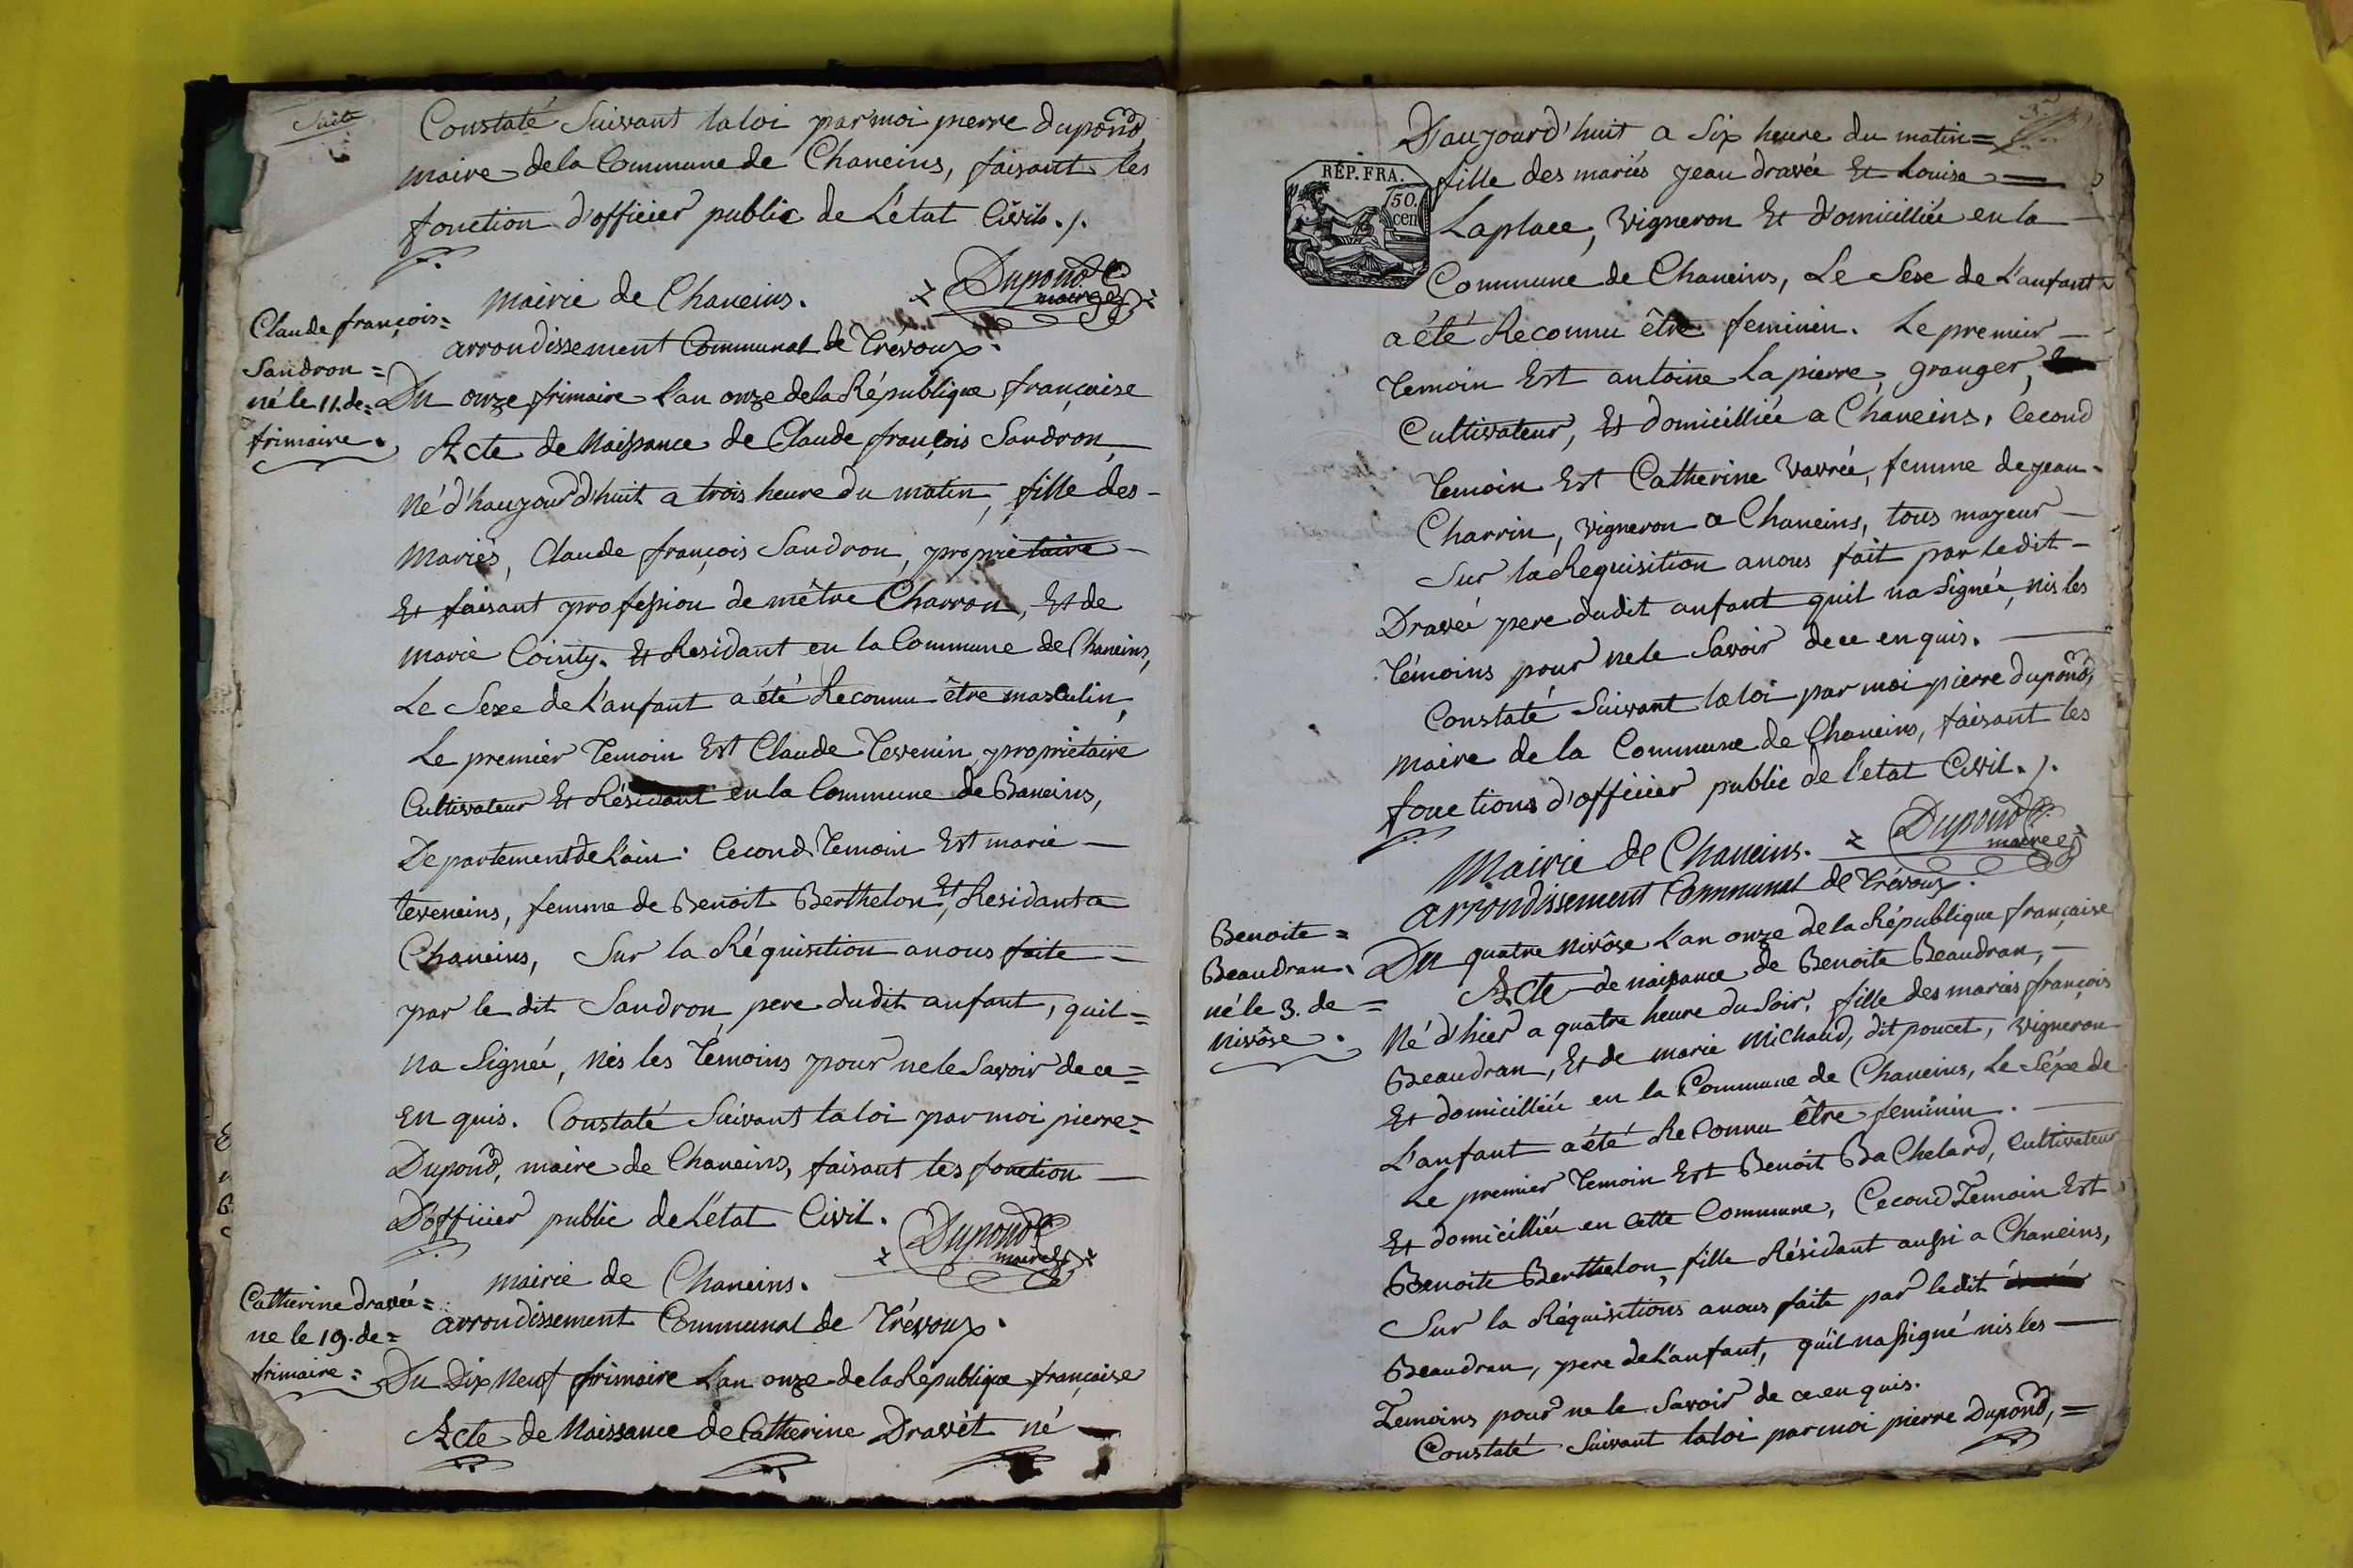 Suite
Constaté Suivant laloi par moi pierre dupond
maire dela Commune de Chaneins, faisant les
fonction d'officier public de L'état Civil./.
Dupond
maire
mairie de Chaneins.
arrondissement Communal de Trévoux.
Claude françois=
Sandron=
né le 11. de=
frimaire.
Du onze frimaire L'an onze dela République française
Acte de Naissance de Claude françois Sandron,
Né d'haujourd'huit a trois heure du matin, fille des-
Mariés, Claude françois Sandron, propriétaire-
Et faisant profession de mêtre Charron, Et de
marie Cointy. Et Residant en la Commune de Chaneins,
Le Sexe de L'anfant a été Reconnu être masculin,
Le premier Temoin Est Claude Tevenin, propriétaire
Cultivateur Et Résidant en la Commune de Baneins,
Departement de Lain. Cecond Temoin Est marie-
teveneins, femme de Benoit Berthelon, Et Residant a
Chaneins, Sur la Réquisition a nous faite-
par le dit Sandron, pere dudit anfant, quil=
na Signée, nis les Temoins pour ne le Savoir de ce=
En quis. Constaté Suivant laloi par moi pierre=
Dupond, maire de Chaneins, faisant les fonction-
D'officier public de L'état Civil.
Dupond
maire
mairie de Chaneins.
arrondissement Communal de Trévoux.
Catherine dravée=
ne le 19. de=
frimaire=
Du Dix Neuf frimaire L'an onze de la République française
Acte de Naissance de Catherine Dravét né
D'aujourd'huit a Six heure du matin=
RÉP. FRA.
50.
cen
fille des mariés jean dravée Et Louise
Laplace, vigneron Et domicilliée en la
Commune de Chaneins, Le Sexe de L'anfant
a été Reconnu être feminin. Le premier-
Temoin Est antoine Lapierre, granger,
Cultivateur, Et domicilliée a Chaneins. Cecond
Temoin Est Catherine vavrée, femme de jean-
Charrin, vigneron a Chaneins, tous mayeur-
Sur la Requisition a nous fait par ledit-
Dravée pere dudit anfant quil na Signée, nis les
Témoins pour ne le Savoir de ce en quis.
Constaté Suivant la loi par moi pierre dupond,
maire de la Commune de Chaneins, faisant les
fonctions d'officier public de l'état Civil./.
Dupond
maire
Mairie de Chaneins.
arrondissement Communal de Trévoux.
Benoite=
Beaudran.
né le 3. de=
nivôse.
Du quatre Nivôse L'an onze de la République française
Acte de naissance de Benoite Beaudran,-
Né d'hier a quatre heure du Soir, fille des mariés françois
Beaudran, Et de marie Michaud, dit poucet, vigneron
Et domicilliée en la Commune de Chaneins, Le Séxe de
L'anfant a été Reconnu être feminin.
Le premier Temoin Est Benoit BaChelard, Cultivateur
Et domicilliée en Cette Commune, Cecond Temoin Est
Benoite Berthelon, fille Résidant aussi a Chaneins,
Sur la Réquisitions a nous faite par ledit
Beaudran, pere de L'anfant, quil na Signé nis les-
Temoins pour ne le Savoir de ce en quis.
Constaté Suivant laloi par moi pierre Dupond,=